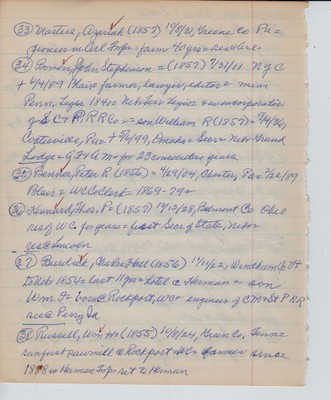 (33) Masters, Azariah (1857) 10/8/31, Greene Co Pa=
pioneer in Arl Twp= farm 40 yrs=
(34) Bowen, John Stephenson = (1857) 7/31/11 N Y C
+ 4/4/89 Blair farmer, lawyer, editor = mem
Penn. Legis 1840s Neb Terr Legis + an incorporator
of S C + P. R R Co = son William R (1857)= 7/4/36,
Coatesville, Pa= + 9/6/99, Omaha = Secr= Nebr Grand
Lodge= G F + A M= for 23 consecutive years
(35) Benner, Peter R (1856)= 4/29/04, Chester, Pa= 2/22/89
Blair= W C Co Clerk= 1869-79=
(36) Kennard, Thos. P= (1857) 12/13/28, Belmont Co Ohio
res of W C for years = first Secr of State, Nebr=
res Lincoln
(37) Burdick, Charles Abel (1856) 11/4/22, Windham Co Vt
to Nebr 1854= last 11 yrs= hotel @ Herman = son
Wm F= born @ Rockport, W C= engineer of C M + St P RR
res @ Perry Ia
(38) Russell, Wm H= (1855) 10/8/24, Co, Tenn=
ran first sawmill @ Rockport W C= farmer since
1858 in Herman Twp= ret to Herman